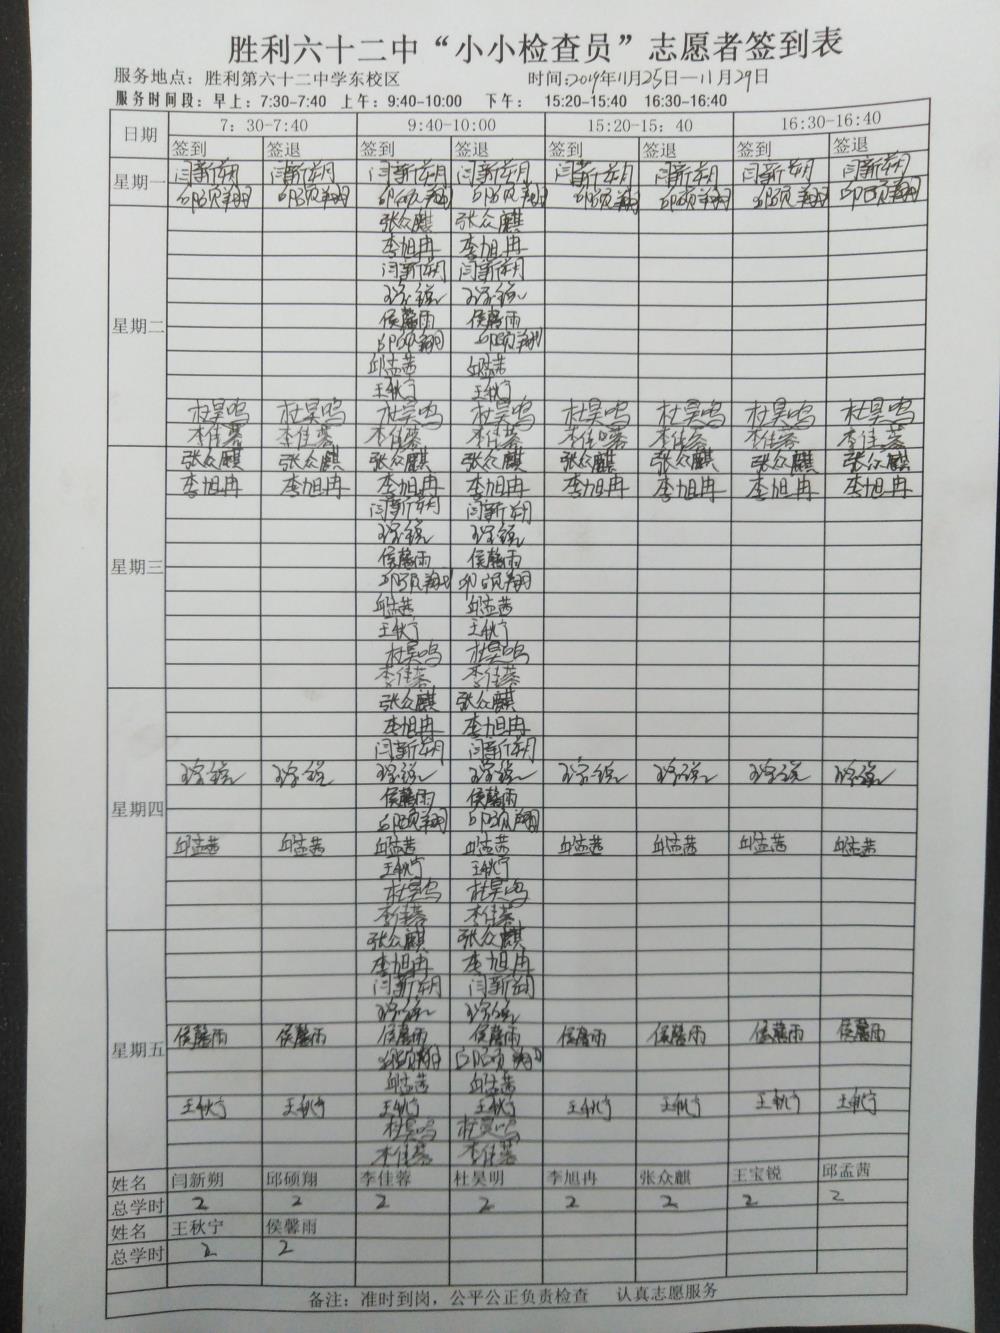 胜利六十二中“小小检查员”志愿者签到表
服务地点：胜利第六十二中学东校区 时间：2019年11月25日—11月29日
服务时间段：早上：7:30-7:40 上午：9:40-10:00 下午： 15:20-15:40 16:30-16:40
日期 7：30-7:40 9:40-10:00 15:20-15：40 16:30-16:40
签到 签退 签到 签退 签到 签退 签到 签退
星期一 闫新朔 闫新朔 闫新朔 闫新朔 闫新朔 闫新朔 闫新朔 闫新朔
邱硕翔 邱硕翔 邱硕翔 邱硕翔 邱硕翔 邱硕翔 邱硕翔 邱硕翔
星期二
张众麒 张众麒
李旭冉 李旭冉
闫新朔 闫新朔
王宝锐 王宝锐
侯馨雨 侯馨雨
邱硕翔 邱硕翔
邱孟茜 邱孟茜
王秋宁 王秋宁
杜昊鸣 杜昊鸣 杜昊鸣 杜昊鸣 杜昊鸣 杜昊鸣 杜昊鸣 杜昊鸣
李佳蓉 李佳蓉 李佳蓉 李佳蓉 李佳蓉 李佳蓉 李佳蓉 李佳蓉
星期三
张众麒 张众麒 张众麒 张众麒 张众麒 张众麒 张众麒 张众麒
李旭冉 李旭冉 李旭冉 李旭冉 李旭冉 李旭冉 李旭冉 李旭冉
闫新朔 闫新朔
王宝锐 王宝锐
侯馨雨 侯馨雨
邱硕翔 邱硕翔
邱孟茜 邱孟茜
王秋宁 王秋宁
杜昊鸣 杜昊鸣
李佳蓉 李佳蓉
星期四
张众麒 张众麒
李旭冉 李旭冉
闫新朔 闫新朔
王宝锐 王宝锐 王宝锐 王宝锐 王宝锐 王宝锐 王宝锐 王宝锐
侯馨雨 侯馨雨
邱硕翔 邱硕翔
邱孟茜 邱孟茜 邱孟茜 邱孟茜 邱孟茜 邱孟茜 邱孟茜 邱孟茜
王秋宁 王秋宁
杜昊鸣 杜昊鸣
李佳蓉 李佳蓉
星期五
张众麒 张众麒
李旭冉 李旭冉
闫新朔 闫新朔
王宝锐 王宝锐
侯馨雨 侯馨雨 侯馨雨 侯馨雨 侯馨雨 侯馨雨 侯馨雨 侯馨雨
邱硕翔 邱硕翔
邱孟茜 邱孟茜
王秋宁 王秋宁 王秋宁 王秋宁 王秋宁 王秋宁 王秋宁 王秋宁
杜昊鸣 杜昊鸣
李佳蓉 李佳蓉
姓名 闫新朔 邱硕翔 李佳蓉 杜昊明 李旭冉 张众麒 王宝锐 邱孟茜
总学时 2 2 2 2 2 2 2 2
姓名 王秋宁 侯馨雨
总学时 2 2
备注：准时到岗，公平公正负责检查 认真志愿服务